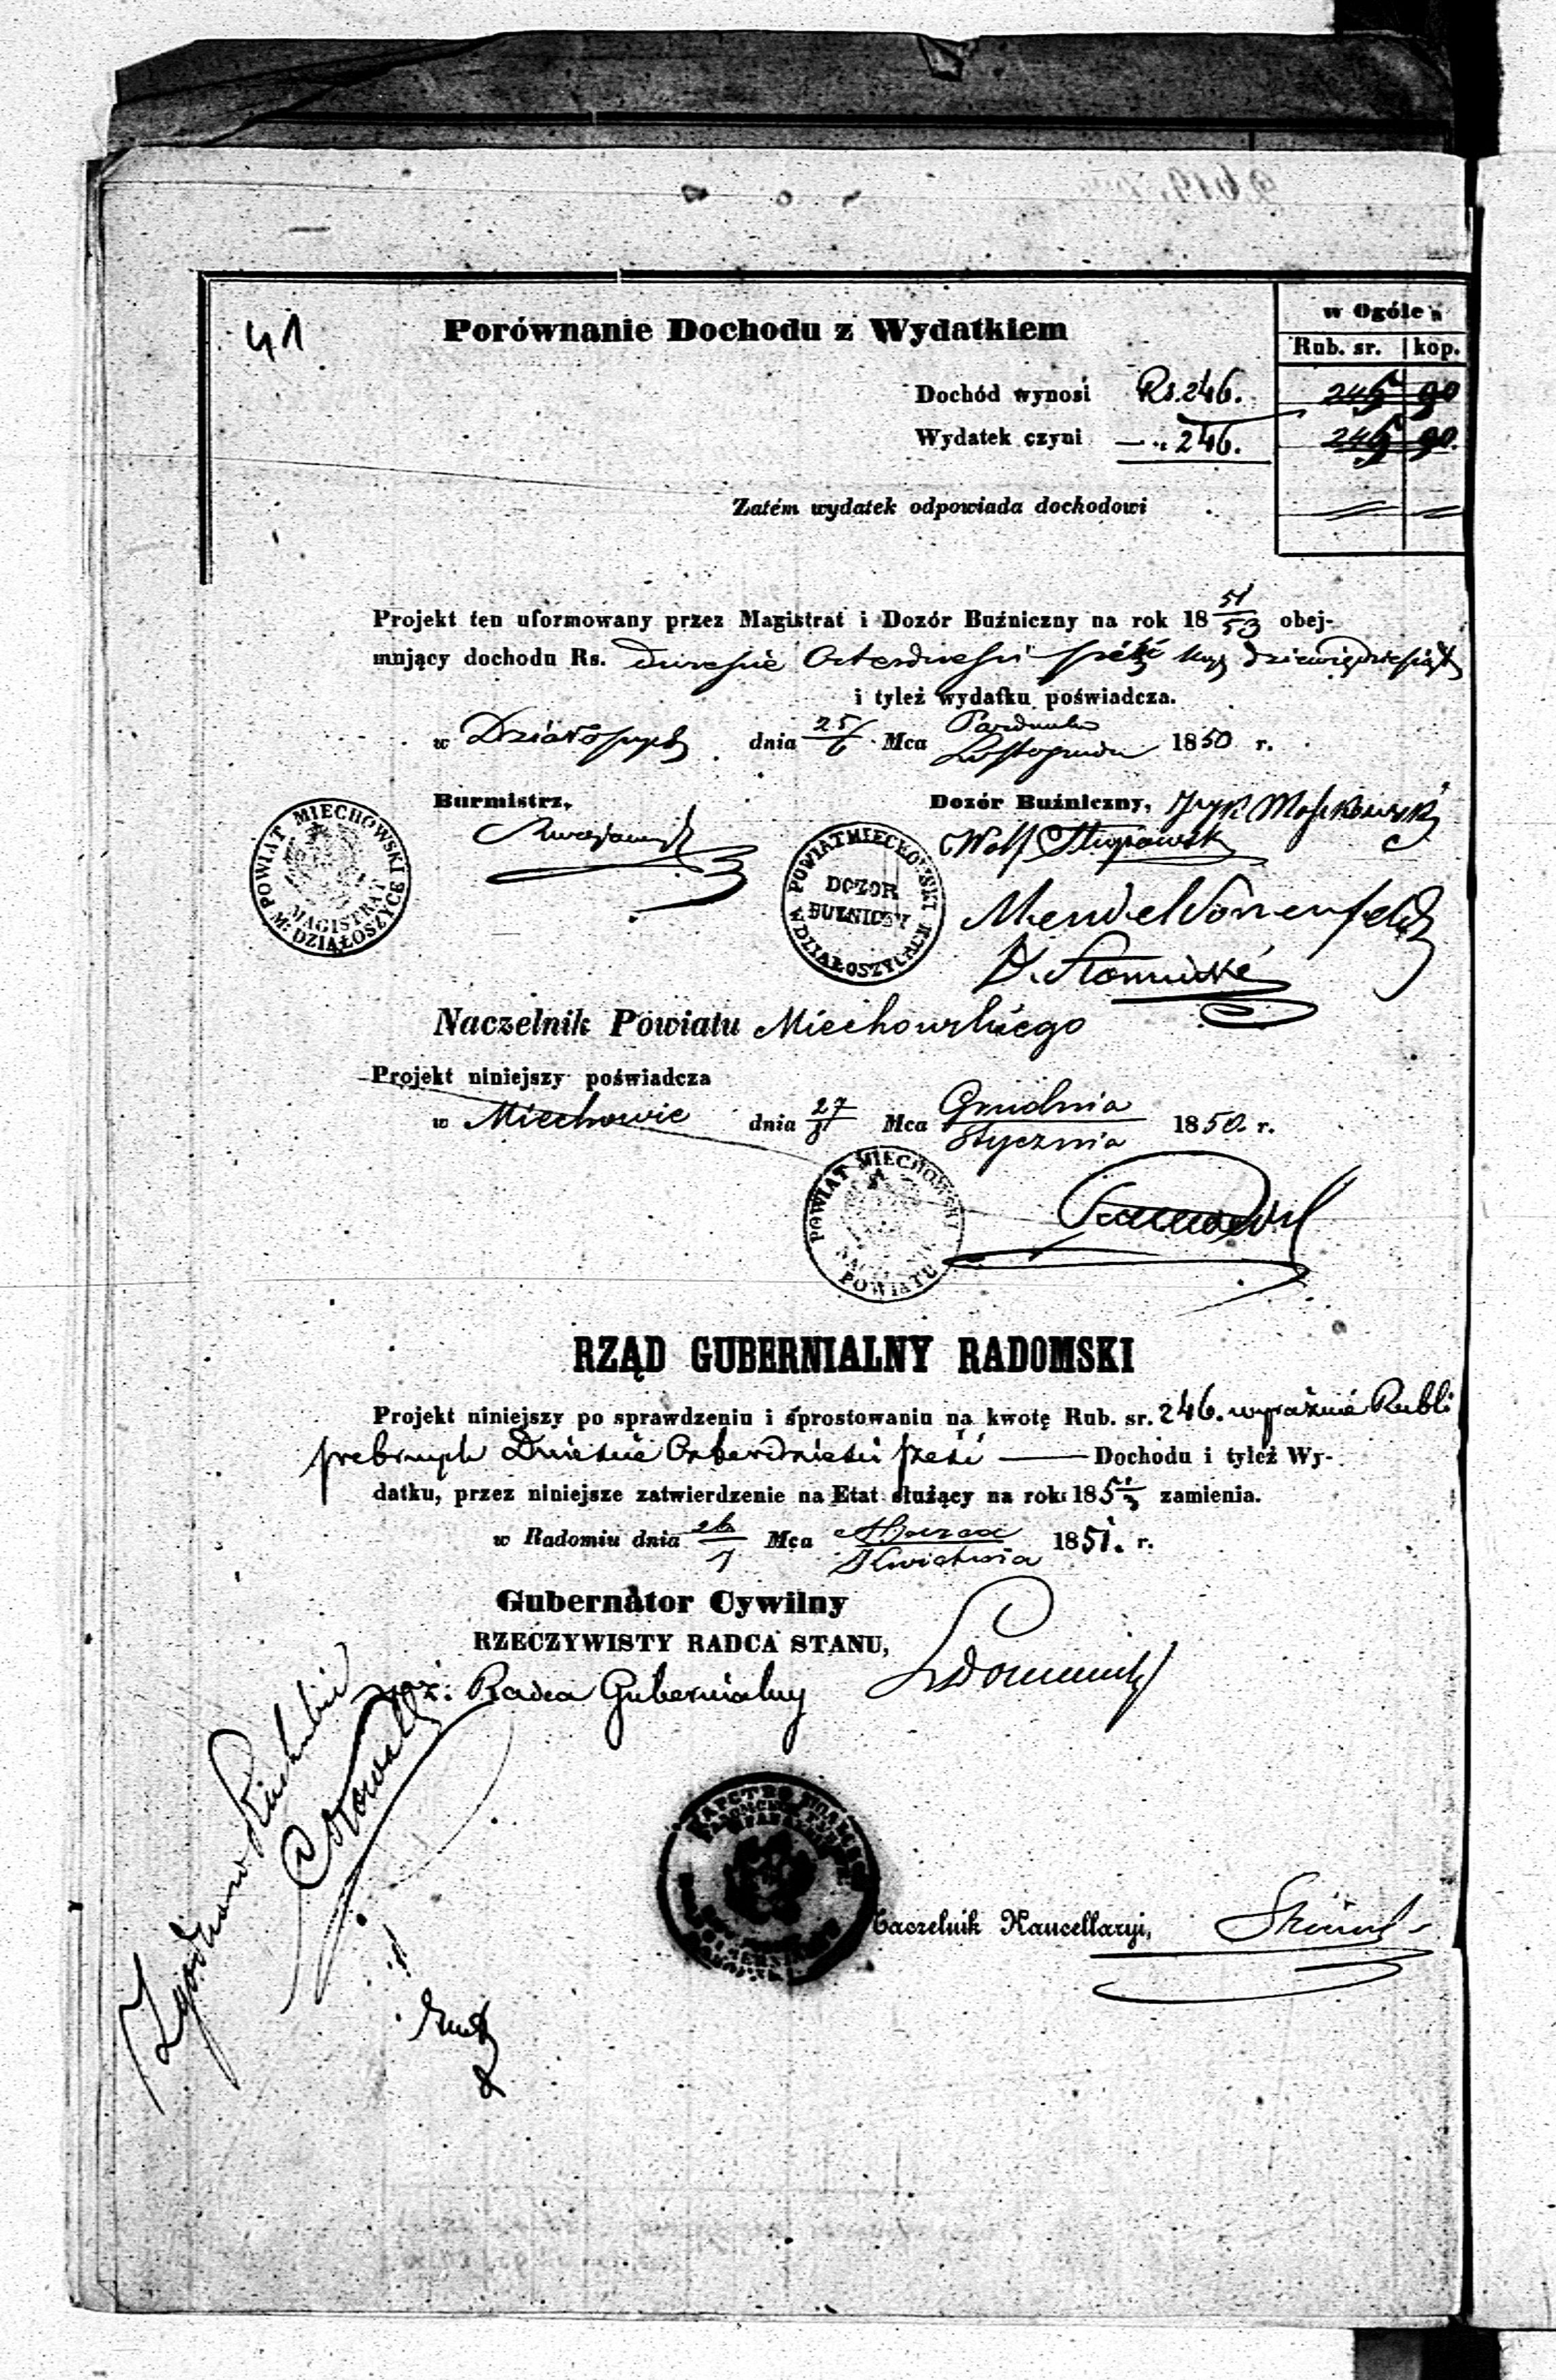 41
Porównanie Dochodu z Wydatkiem
w Ogóle
Rub. sr. kop.
Dochód wynosi Rs. 246. 245 90
Wydatek czyni — „ 246. 245 90.
Zatém wydatek odpowiada dochodowi
Projekt ten uformowany przez Magistrat i Dozór Buźniczny na rok 18 51/53 obej-
mujący dochodu Rs. Dwieście Czterdzieści pięć kop dziewięćdziesiąt
i tyleż wydatku poświadcza.
w Działoszycach dnia 25/6 Mca Październ Listopada 1850 r.
Burmistrz,
Dozór Buźniczny,
Wolf
POWIAT MIECHOWSKI
MAGISTRAT
M: DZIAŁOSZYCE
POWIAT MIECHOWSKI
DOZOR
BUZNICZY
W DZIAŁOSZYCACH
Mendel Vonenfeld
Naczelnik Powiatu Miechowskiego
Projekt niniejszy poświadcza
w Miechowie dnia 27/8 Mca Grudnia Stycznia 1850. r.
POWIAT MIECHOWSKI
POWIATU
RZĄD GUBERNIALNY RADOMSKI
Projekt niniejszy po sprawdzeniu i sprostowaniu na kwotę Rub. sr. 246. wyraźnie Rubli
srebrnych Dwieście Czterdzieści sześć — Dochodu i tyleż Wy-
datku, przez niniejsze zatwierdzenie na Etat służący na rok 185 1/3 zamienia.
w Radomiu dnia 26/7 Mca Marca Kwietnia 1851. r.
Gubernator Cywilny
RZECZYWISTY RADCA STANU,
Radca Gubernialny
Naczelnik Kancellaryi,